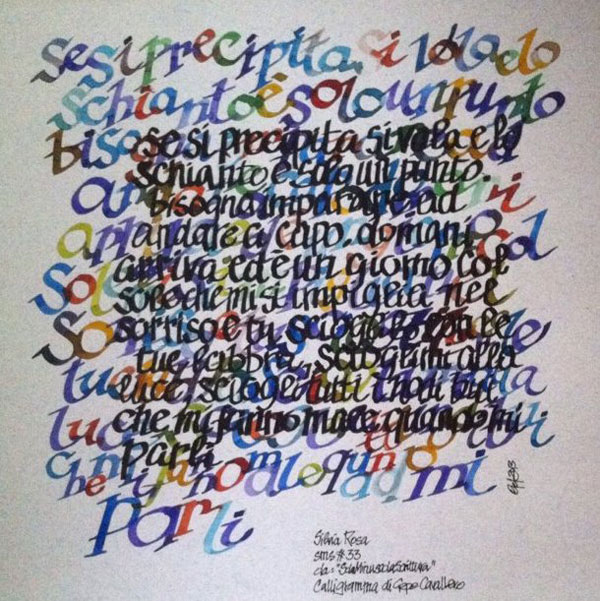 Se si precipita, si vola e lo
schianto è solo un punto
se si precipita si vola e lo
schianto è solo un punto.
bisogna imparare ad
andare a capo. domani
arriva ed è un giorno col
sole che mi si impiglia nel
sorriso e tu con le
tue labbra, scioglimi alla
luce, sciogli tutti i nodi blu
che mi fanno male quando mi
parli
mi
parli
Silvia Rosa
sms #33
da: "SoloMinuscolaScrittura"
Calligramma di Gepe Cavallero